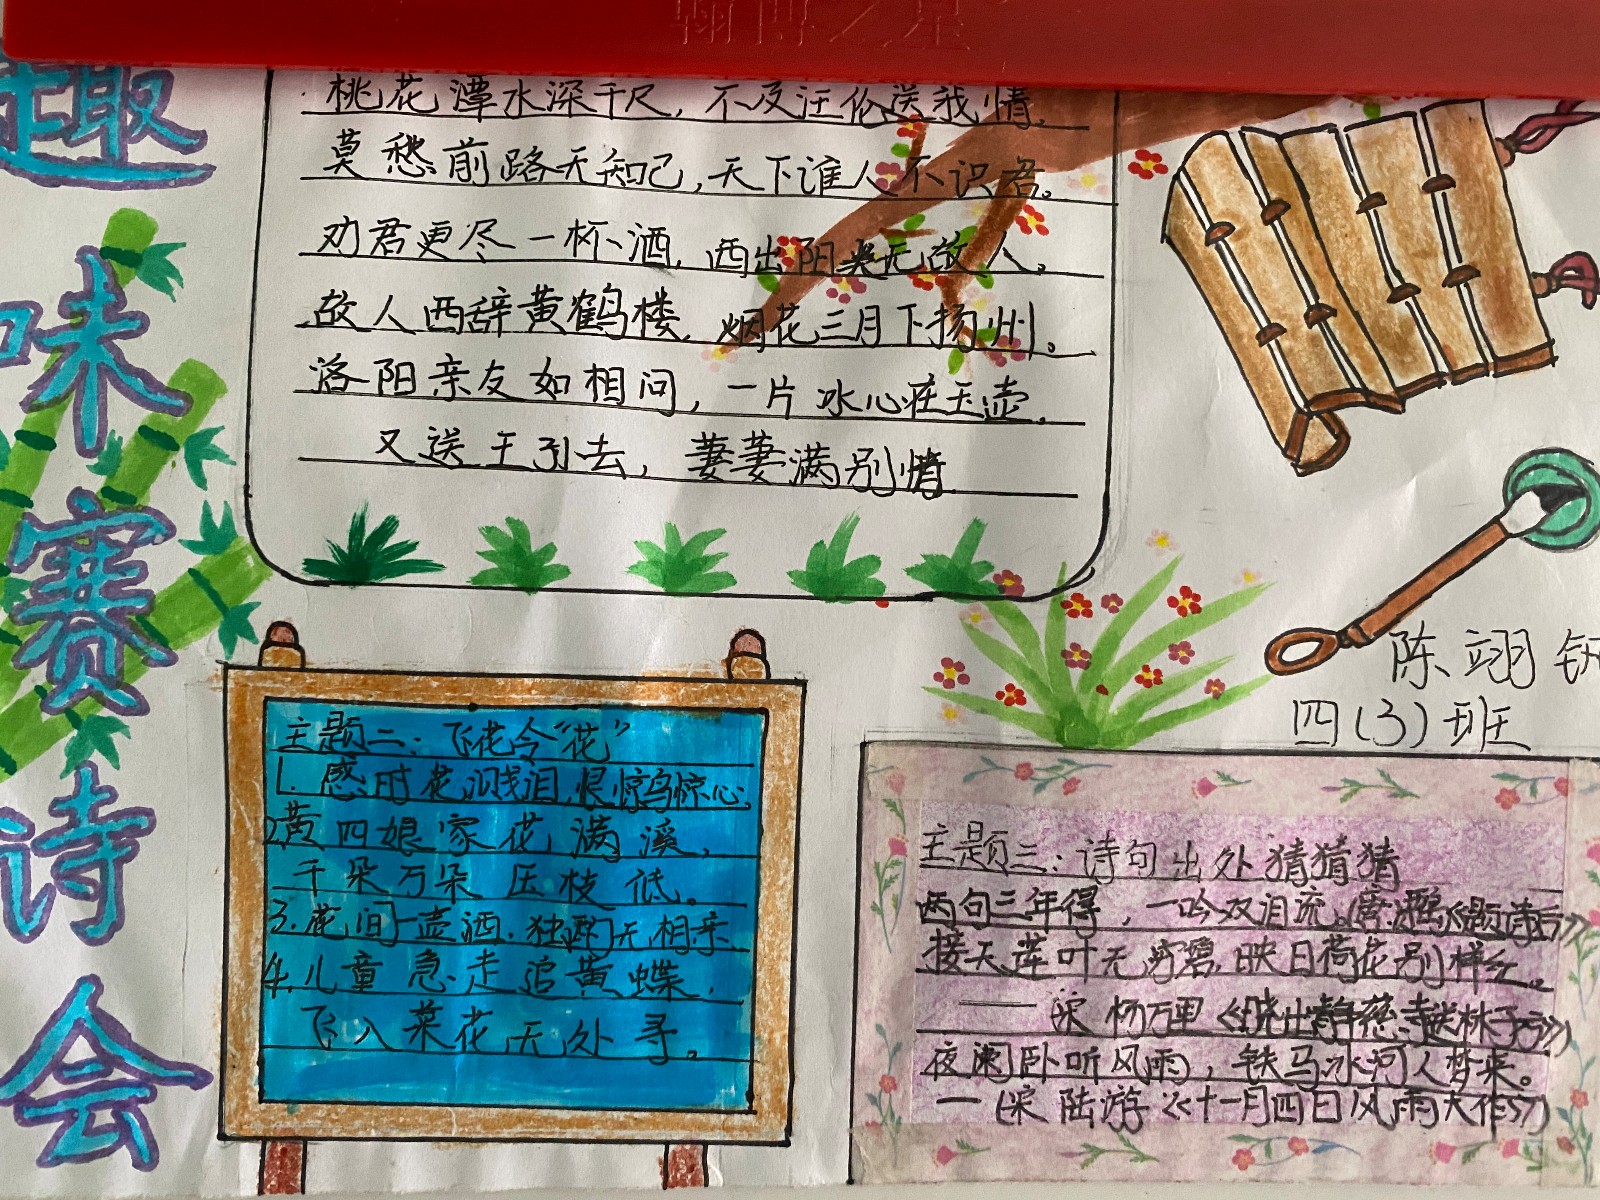 翰博之星
趣味赛诗会
桃花潭水深千尺，不及汪伦送我情。
莫愁前路无知己，天下谁人不识君。
劝君更尽一杯酒，西出阳关无故人。
故人西辞黄鹤楼，烟花三月下扬州。
洛阳亲友如相问，一片冰心在玉壶。
又送王孙去，萋萋满别情
陈翊
四(3)班
主题二：飞花令“花”
1.感时花溅泪，恨惊鸟惊心
2黄四娘家花满溪，
千朵万朵压枝低。
3.花间一壶酒.独酌无相亲
4.儿童急走追黄蝶，
飞入菜花无处寻。
主题三：诗句出处猜猜猜
两句三年得，一吟双泪流。唐《题诗后》
接天莲叶无穷碧，映日荷花别样红。
——宋 杨万里《晓出静慈寺送林子方》
夜阑卧听风雨，铁马冰河入梦来。
一(宋 陆游《十一月四日风雨大作》)